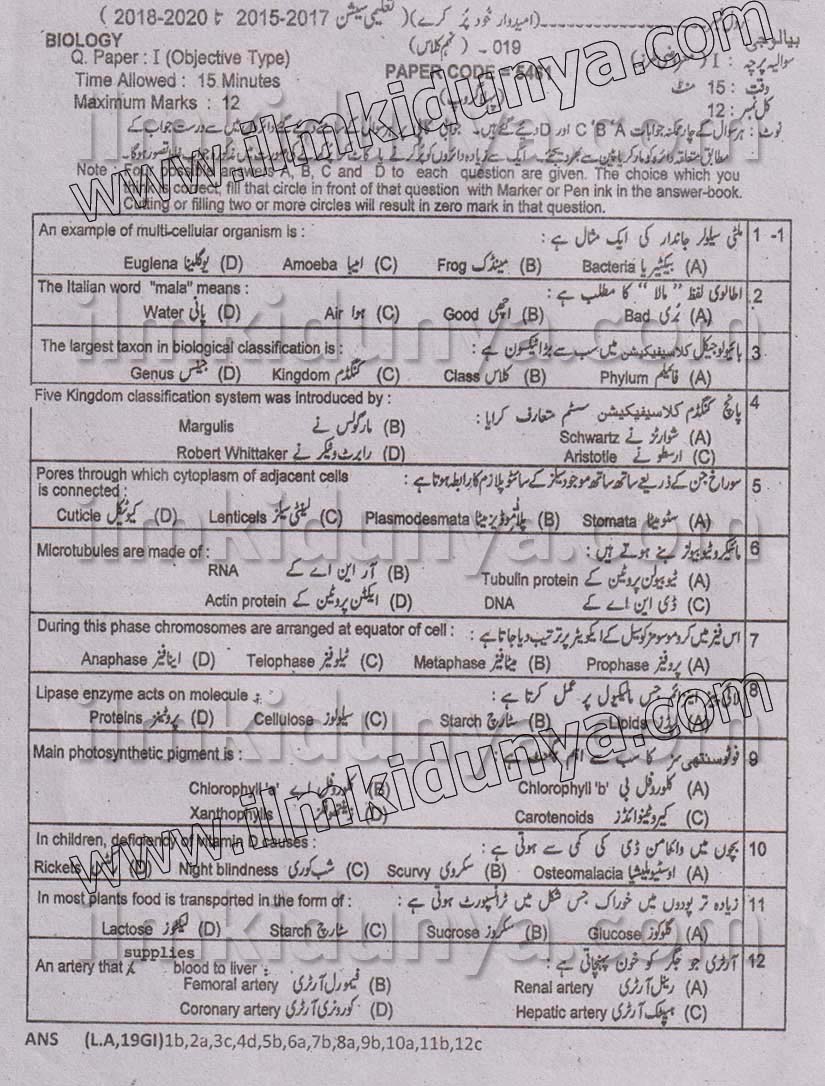 (امیدوار خود پُر کرے) (تعلیمی سیشن 2017-2015 تا 2020-2018)
BIOLOGY
019 - (نہم کلاس)
بیالوجی
Q. Paper : I (Objective Type)
سوالیہ پرچہ : I
Time Allowed : 15 Minutes
PAPER CODE = 5461
وقت : 15 منٹ
Maximum Marks : 12
کل نمبر : 12
نوٹ : ہر سوال کے چار ممکنہ جوابات A، B، C اور D دیئے گئے ہیں۔
Note : Four possible answers A, B, C and D to each question are given. The choice which you
think is correct, fill that circle in front of that question with Marker or Pen ink in the answer-book.
Cutting or filling two or more circles will result in zero mark in that question.
An example of multi-cellular organism is : ملٹی سیلولر جاندار کی ایک مثال ہے : 1 -1
Euglena یوگلینا (D) Amoeba امیبا (C) Frog مینڈک (B) Bacteria بیکٹیریا (A)
The Italian word "mala" means : اطالوی لفظ "مالا" کا مطلب ہے : 2
Water پانی (D) Air ہوا (C) Good اچھی (B) Bad بُری (A)
The largest taxon in biological classification is : بائیولوجیکل کلاسیفیکیشن میں سب سے بڑا ٹیکسون ہے : 3
Genus جینس (D) Kingdom کنگڈم (C) Class کلاس (B) Phylum فائیلم (A)
Five Kingdom classification system was introduced by : پانچ کنگڈم کلاسیفیکیشن سسٹم متعارف کرایا : 4
Margulis مارگولس نے (B) Schwartz شوارٹز نے (A)
Robert Whittaker رابرٹ وٹیکر نے (D) Aristotle ارسطو نے (C)
Pores through which cytoplasm of adjacent cells is connected : سوراخ جن کے ذریعے ساتھ ساتھ موجود سیلز کے سائٹوپلازم کا رابطہ ہوتا ہے : 5
Cuticle کیوٹیکل (D) Lenticels لینٹی سیلز (C) Plasmodesmata پلازموڈیزمیٹا (B) Stomata سٹومیٹا (A)
Microtubules are made of : مائیکروٹیوبیولز بنے ہوتے ہیں : 6
RNA آر این اے کے (B) Tubulin protein ٹیوبیولن پروٹین کے (A)
Actin protein ایکٹن پروٹین کے (D) DNA ڈی این اے کے (C)
During this phase chromosomes are arranged at equator of cell : اس فیز میں کروموسومز کو سیل کے ایکویٹر پر ترتیب دیا جاتا ہے : 7
Anaphase اینافیز (D) Telophase ٹیلوفیز (C) Metaphase میٹافیز (B) Prophase پروفیز (A)
Lipase enzyme acts on molecule : جس مالیکیول پر عمل کرتا ہے : 8
Proteins پروٹینز (D) Cellulose سیلولوز (C) Starch سٹارچ (B) Lipids (A)
Main photosynthetic pigment is : فوٹوسنتھی سز کا سب سے اہم 9
Chlorophyll 'a' کلوروفل اے (B) Chlorophyll 'b' کلوروفل بی (A)
Xanthophylls (D) Carotenoids کیروٹینوائڈز (C)
In children, deficiency of vitamin D causes : بچوں میں وٹامن ڈی کی کمی سے ہوتی ہے : 10
Rickets (D) Night blindness شب کوری (C) Scurvy سکروی (B) Osteomalacia اوسٹیومیلیشیا (A)
In most plants food is transported in the form of : زیادہ تر پودوں میں خوراک جس شکل میں ٹرانسپورٹ ہوتی ہے : 11
Lactose لیکٹوز (D) Starch سٹارچ (C) Sucrose سکروز (B) Glucose گلوکوز (A)
An artery that supplies blood to liver : آرٹری جو جگر کو خون پہنچاتی ہے : 12
Femoral artery فیمورل آرٹری (B) Renal artery رینل آرٹری (A)
Coronary artery کورونری آرٹری (D) Hepatic artery ہیپٹک آرٹری (C)
ANS (L.A,19GI)1b,2a,3c,4d,5b,6a,7b,8a,9b,10a,11b,12c
www.ilmkidunya.com
www.ilmkidunya.com
ilmkidunya.com
ilmkidunya.com
ilmkidunya.com
ilmkidunya.com
ilmkidunya.com